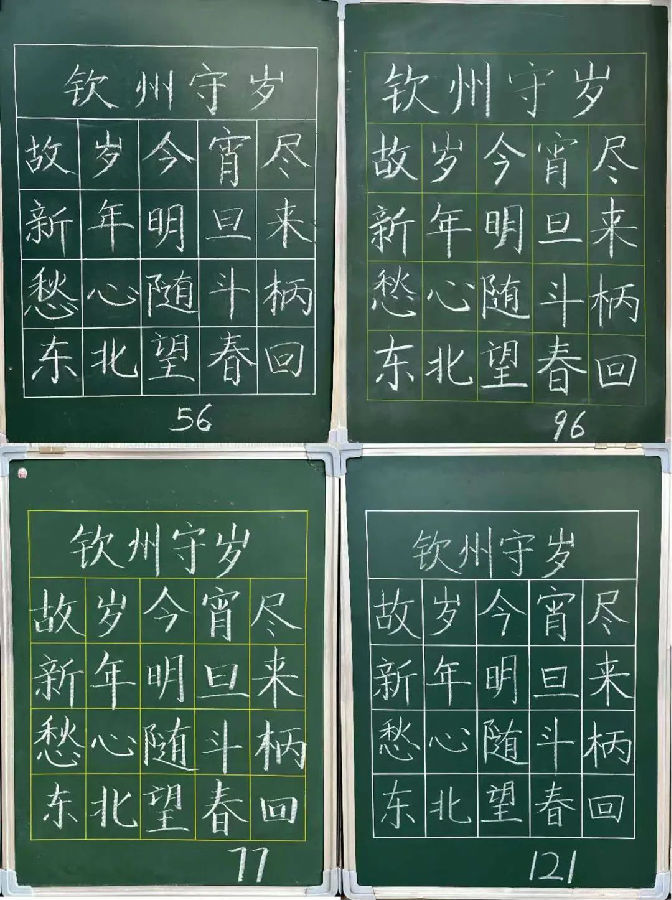 钦州守岁
故岁今宵尽
新年明旦来
愁心随斗柄
东北望春回
56
钦州守岁
故岁今宵尽
新年明旦来
愁心随斗柄
东北望春回
96
钦州守岁
故岁今宵尽
新年明旦来
愁心随斗柄
东北望春回
77
钦州守岁
故岁今宵尽
新年明旦来
愁心随斗柄
东北望春回
121